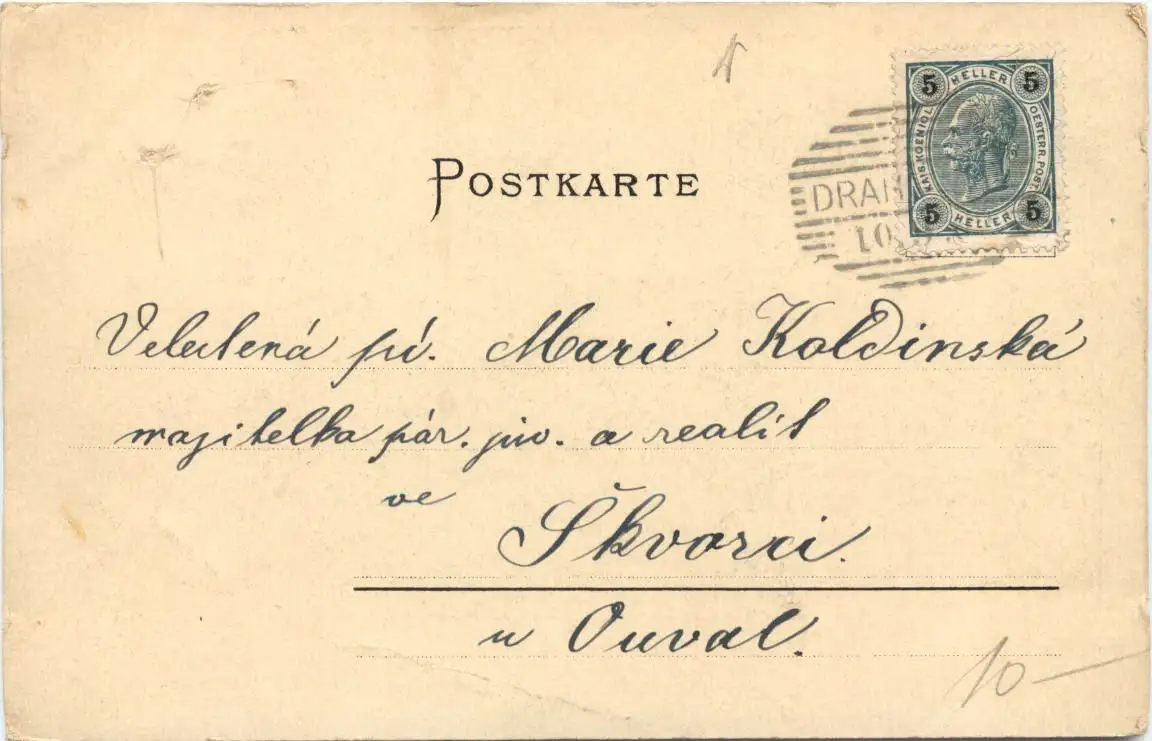 POSTKARTE
5 HELLER 5
KAIS. KOENIGL. OESTERR. POST.
5 HELLER 5
Velectená pí. Marie Koldinská
majitelka pár. piv. a realit
ve
Škvorci.
u Ouval.
10-